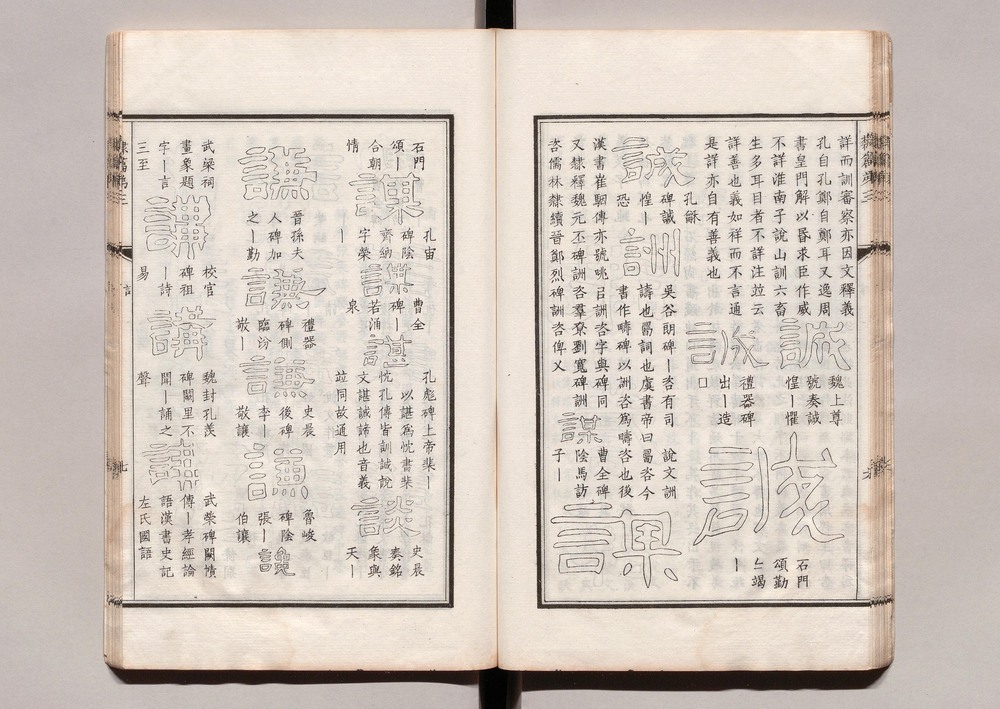 詳而訓審察亦因文釋義
孔自孔鄭自鄭耳又逸周
書皇門解以昏求臣作威
不詳淮南子說山訓六畜
生多耳目者不詳注竝云
詳善也義如祥而不言通
是詳亦自有善義也
誠
魏上尊
號奏誠
惶丨懼
誠
禮器碑
出丨造
□
誠
石門
頌勤
丨
孔龢
碑誠
惶丨
恐
誠
詶
吳谷朗碑丨咨有司
說文詶
譸也畧詞也虞書帝曰畧咨今
書作疇碑以詶咨爲疇咨也後
漢書崔駰傳亦號咷㠯詶咨字與碑同
又隸釋魏元丕碑詶咨羣寮劉寬碑詶
咨儒林隸續晉鄭烈碑詶咨俾乂
謀
曹全碑
陰馬訪
子丨
謀
石門
頌丨
合朝
情
謀
孔宙
碑陰
齊納
字榮
丨
謀
曹全
碑丨
若涌
泉
諶
孔彪碑上帝棐丨
以諶爲忱書棐
忱孔傳皆訓誠說
文諶誠諦也音義
竝同故通用
談
史晨
奏銘
象與
天丨
讓
晉孫夫
人碑加
之丨勤
讓
禮器
碑側
臨汾
敬丨
讓
史晨
後碑
李丨
敬讓
讓
魯峻
碑陰
張丨
伯讓
武梁祠
畫象題
字丨言
三至
講
校官
碑祖
丨詩
易
講
魏封孔羨
碑闕里不
聞丨誦之
聲
講
武榮碑闕幘
傳丨孝經論
語漢書史記
左氏國語